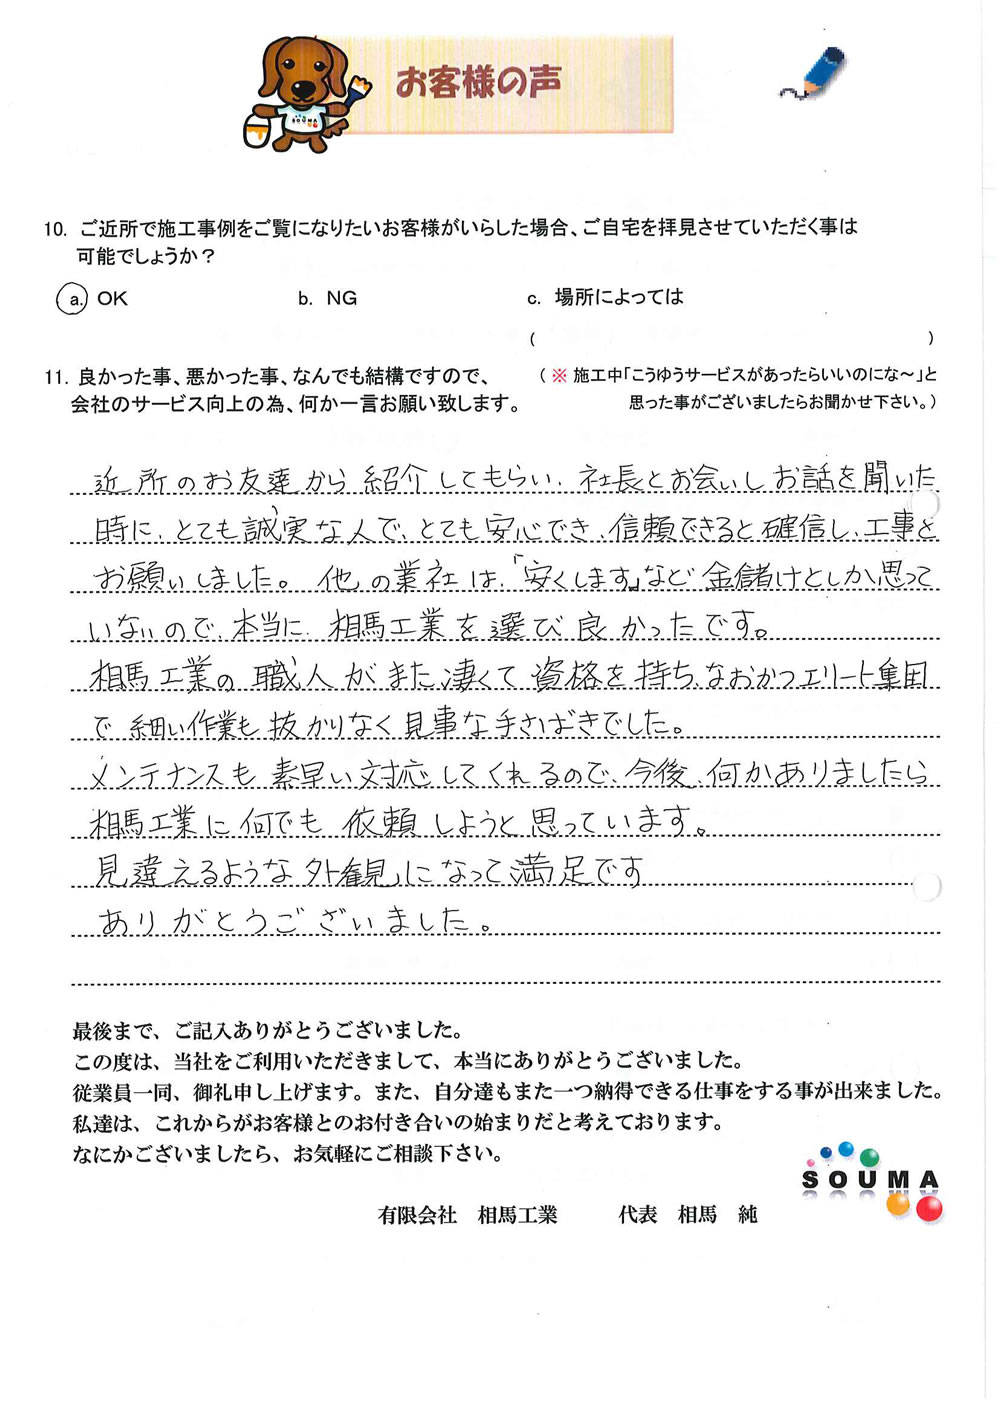 お客様の声
SOUMA
10. ご近所で施工事例をご覧になりたいお客様がいらした場合、ご自宅を拝見させていただく事は
可能でしょうか？
a. OK b. NG c. 場所によっては
( )
11. 良かった事、悪かった事、なんでも結構ですので、 （ ※ 施工中「こうゆうサービスがあったらいいのにな～」と
会社のサービス向上の為、何か一言お願い致します。 思った事がございましたらお聞かせ下さい。）
近所のお友達から紹介してもらい、社長とお会いしお話を聞いた
時に、とても誠実な人で、とても安心でき、信頼できると確信し、工事を
お願いしました。他の業社は、「安くします」など金儲けとしか思って
いないので、本当に、相馬工業を選び良かったです。
相馬工業の職人がまた凄くて資格を持ち、なおかつエリート集団
で細い作業も抜かりなく見事な手さばきでした。
メンテナンスも素早い対応してくれるので、今後、何かありましたら
相馬工業に何でも依頼しようと思っています。
見違えるような外観になって満足です
ありがとうございました。
最後まで、ご記入ありがとうございました。
この度は、当社をご利用いただきまして、本当にありがとうございました。
従業員一同、御礼申し上げます。また、自分達もまた一つ納得できる仕事をする事が出来ました。
私達は、これからがお客様とのお付き合いの始まりだと考えております。
なにかございましたら、お気軽にご相談下さい。
SOUMA
有限会社 相馬工業 代表 相馬 純